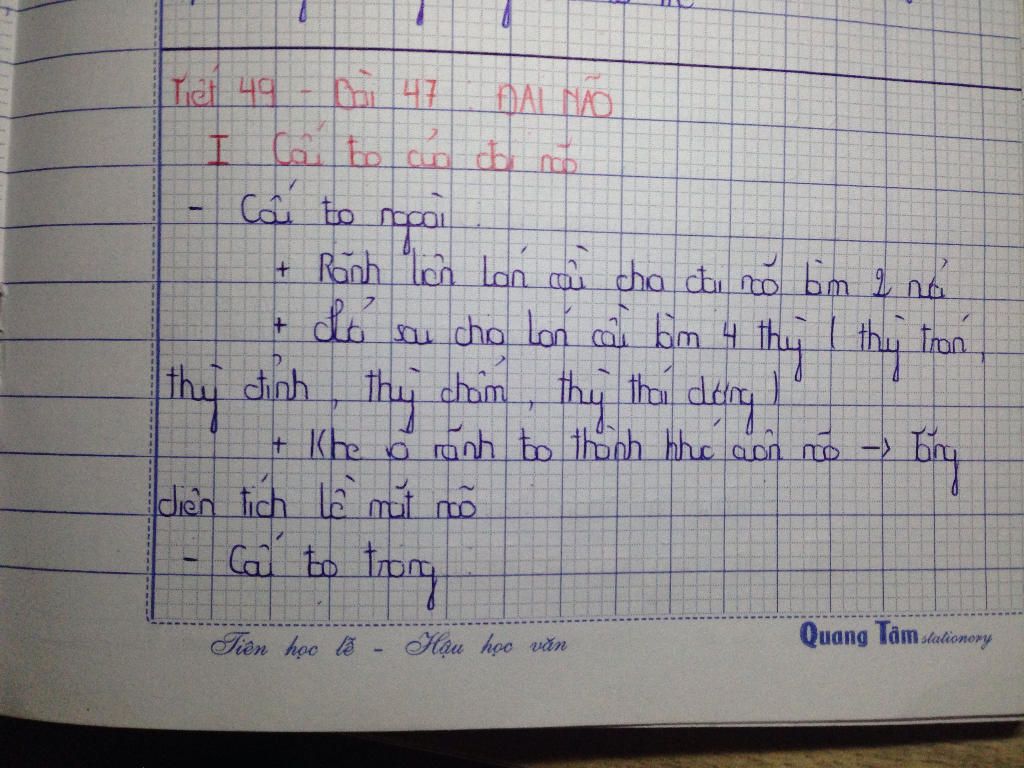 Tiết 49 - Bài 47 : ĐẠI NÃO
I Cấu tạo của đại não
- Cấu tạo ngoài
+ Rãnh liên bán cầu chia đại não làm 2 nửa
+ Rãnh sâu chia bán cầu làm 4 thùy ( thùy trán,
thùy đỉnh, thùy chẩm, thùy thái dương )
+ Khe và rãnh tạo thành khúc cuộn não → Tăng
diện tích bề mặt não
- Cấu tạo trong
Tiên học lễ - Hậu học văn
Quang Tâm stationery